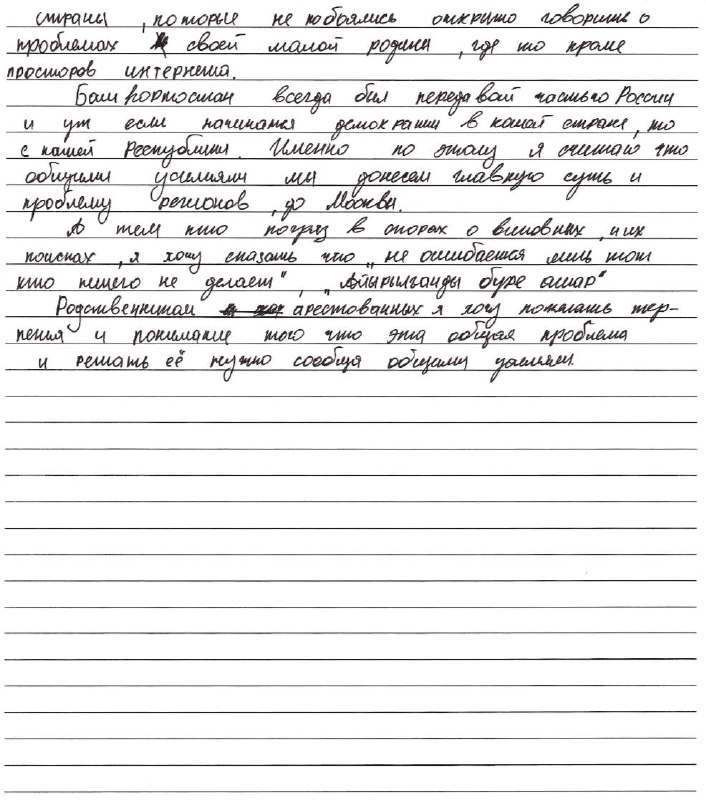 страны, которые не побоялись открыто говорить о
проблемах своей малой родины, где то кроме
просторов интернета.
Башкортостан всегда был передавой частью России
и уж если начинатся демократии в нашей стране, то
с нашей Республики. Именно по этому я считаю что
общими усилиями мы донесем главную суть и
проблему регионов, до Москвы.
А тем кто погряз в спорах о виновных, и их
поисках, я хочу сказать что „не ошибается лишь тот
кто ничего не делает", „Айырылганды буре ашар"
Родственникам арестованных я хочу пожелать тер-
пения и понимание того что эта общая проблема
и решать её нужно сообща общими усилиями